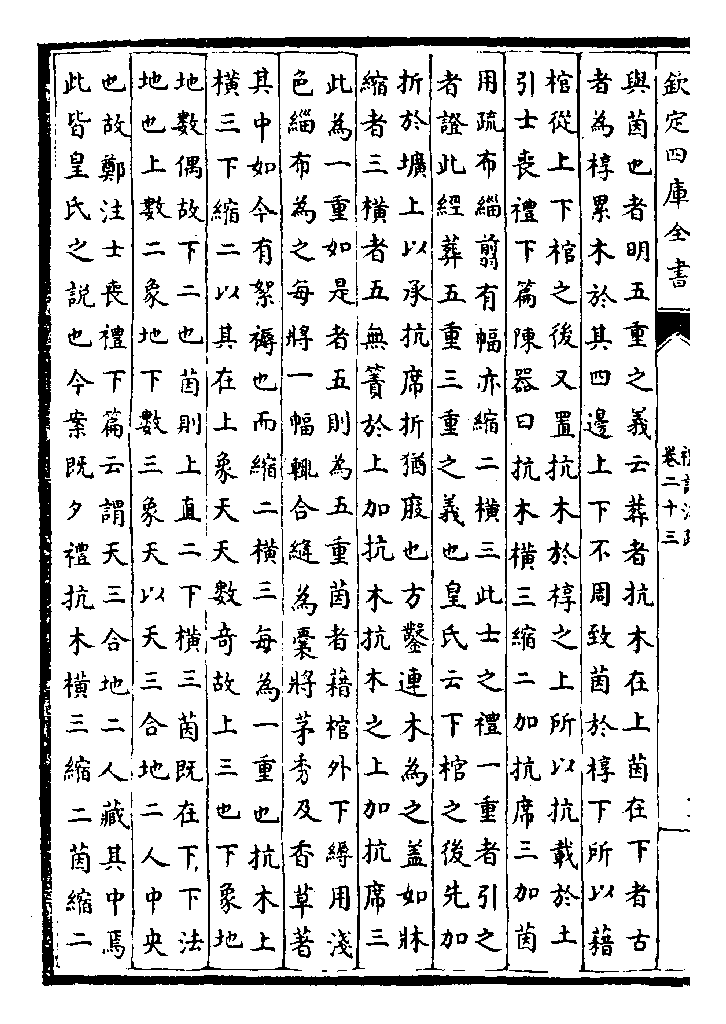 欽定四庫全書
卷二十三
與茵也者明五重之義云葬者抗木在上茵在下者古
者為椁累木於其四邊上下不周致茵於椁下所以藉
棺從上下棺之後又置抗木於椁之上所以抗載於土
引士喪禮下篇陳器曰抗木橫三縮二加抗席三加茵
用疏布緇翦有幅亦縮二橫三此士之禮一重者引之
者證此經葬五重三重之義也皇氏云下棺之後先加
折於壙上以承抗席折猶庪也方鑿連木為之蓋如牀
縮者三橫者五無簀於上加抗木抗木之上加抗席三
此為一重如是者五則為五重茵者藉棺外下縟用淺
色緇布為之每將一幅輒合縫為囊將茅秀及香草著
其中如今有絮褥也而縮二橫三每為一重也抗木上
橫三下縮二以其在上象天天數奇故上三也下象地
地數偶故下二也茵則上直二下橫三茵既在下下法
地也上數二象地下數三象天以天三合地二人中央
也故鄭注士喪禮下篇云謂天三合地二人藏其中焉
此皆皇氏之說也今案既夕禮抗木橫三縮二茵縮二